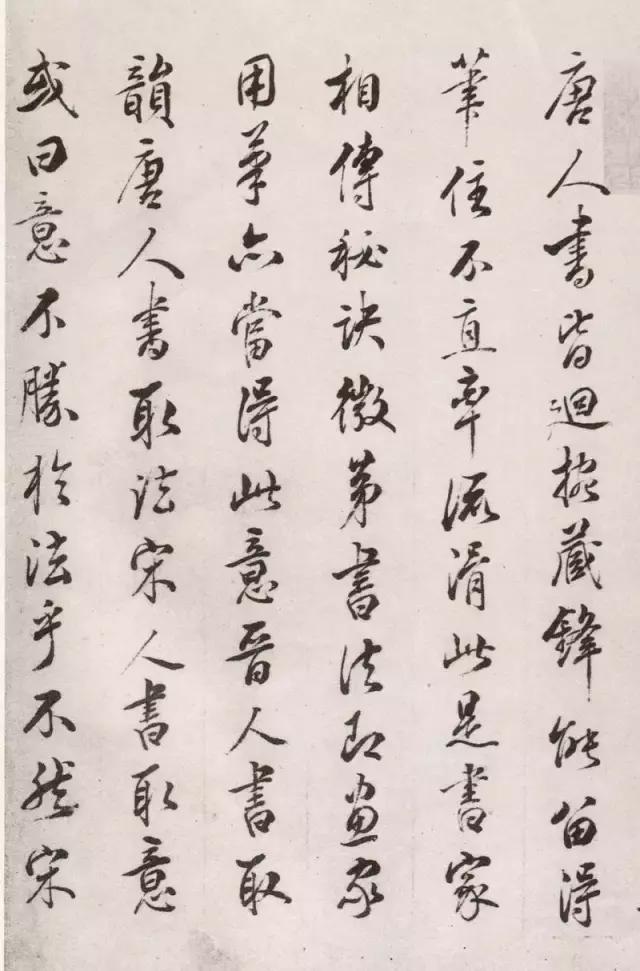 唐人書皆迴捥藏鋒能留得
筆住不直率流滑此是書家
相傳秘訣微第書法即畫家
用筆亦當得此意晉人書取
韻唐人書取法宋人書取意
或曰意不勝於法乎不然宋